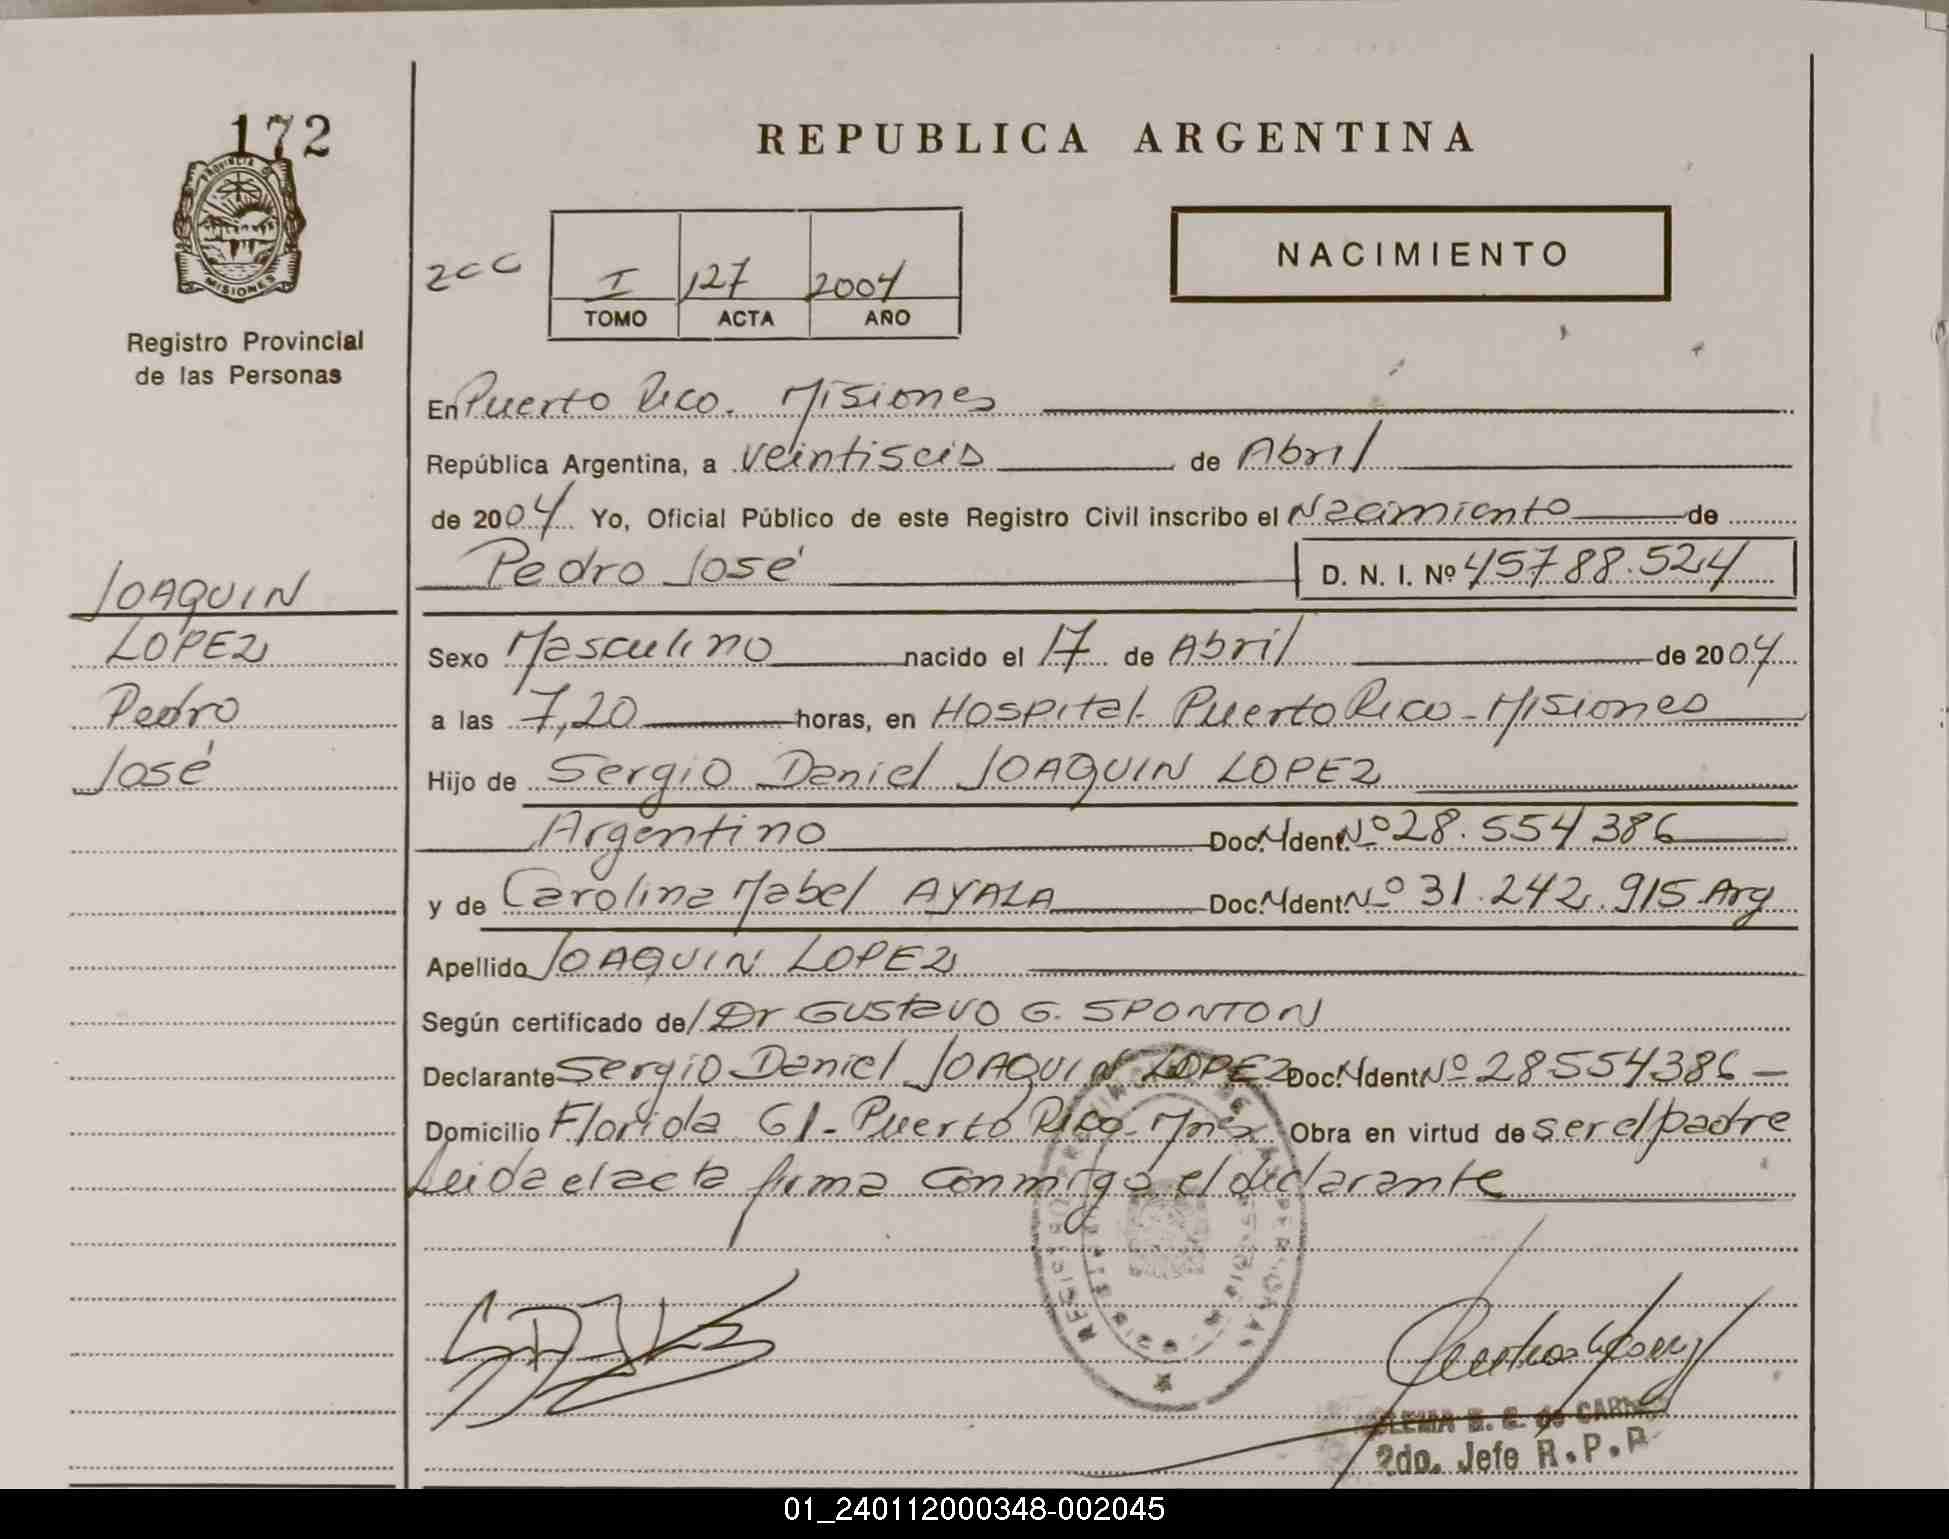 172
PROVINCIA DE
MISIONES
Registro Provincial
de las Personas
JOAQUIN
LOPEZ
Pedro
José
REPUBLICA ARGENTINA
I 127 2004
TOMO ACTA AÑO
NACIMIENTO
En Puerto Rico. Misiones
República Argentina, a veintiseis de Abril
de 2004 Yo, Oficial Público de este Registro Civil inscribo el Nacimiento de
Pedro José D. N. I. Nº 45788.524
Sexo Masculino nacido el 17 de Abril de 2004
a las 7,20 horas, en Hospital Puerto Rico - Misiones
Hijo de Sergio Daniel JOAQUIN LOPEZ
Argentino Doc. Ident. Nº 28.554386
y de Carolina Mabel AYALA Doc. Ident. Nº 31.242.915 Arg
Apellido JOAQUIN LOPEZ
Según certificado de/ Dr GUSTAVO G. SPONTON
Declarante Sergio Daniel JOAQUIN LOPEZ Doc. Ident. Nº 28554386 -
Domicilio Florida 61 - Puerto Rico - Mnes Obra en virtud de ser el padre
Leida el acta firma conmigo el declarante
2do. Jefe R.P.P.
01_240112000348-002045